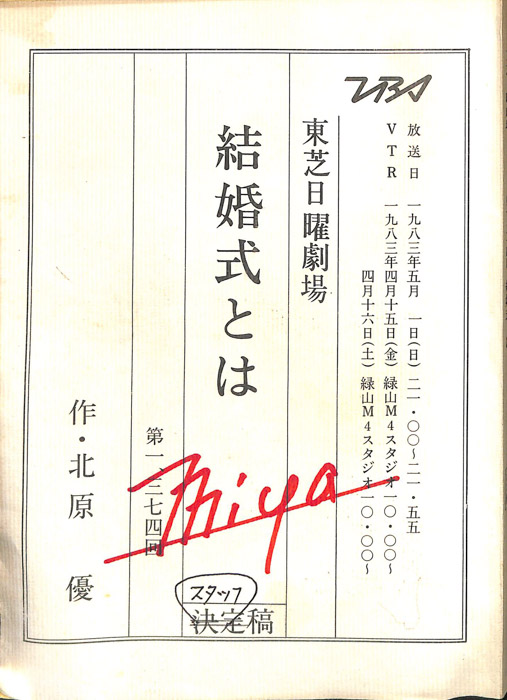 TBS
放送日 一九八三年五月 一日(日) 二一・〇〇〜二一・五五
VTR 一九八三年四月十五日(金) 緑山M4スタジオ一〇・〇〇〜
四月十六日(土) 緑山M4スタジオ一〇・〇〇〜
東芝日曜劇場
結婚式とは
スタッフ
決定稿
第一、三七四回
Miya
作・北原 優